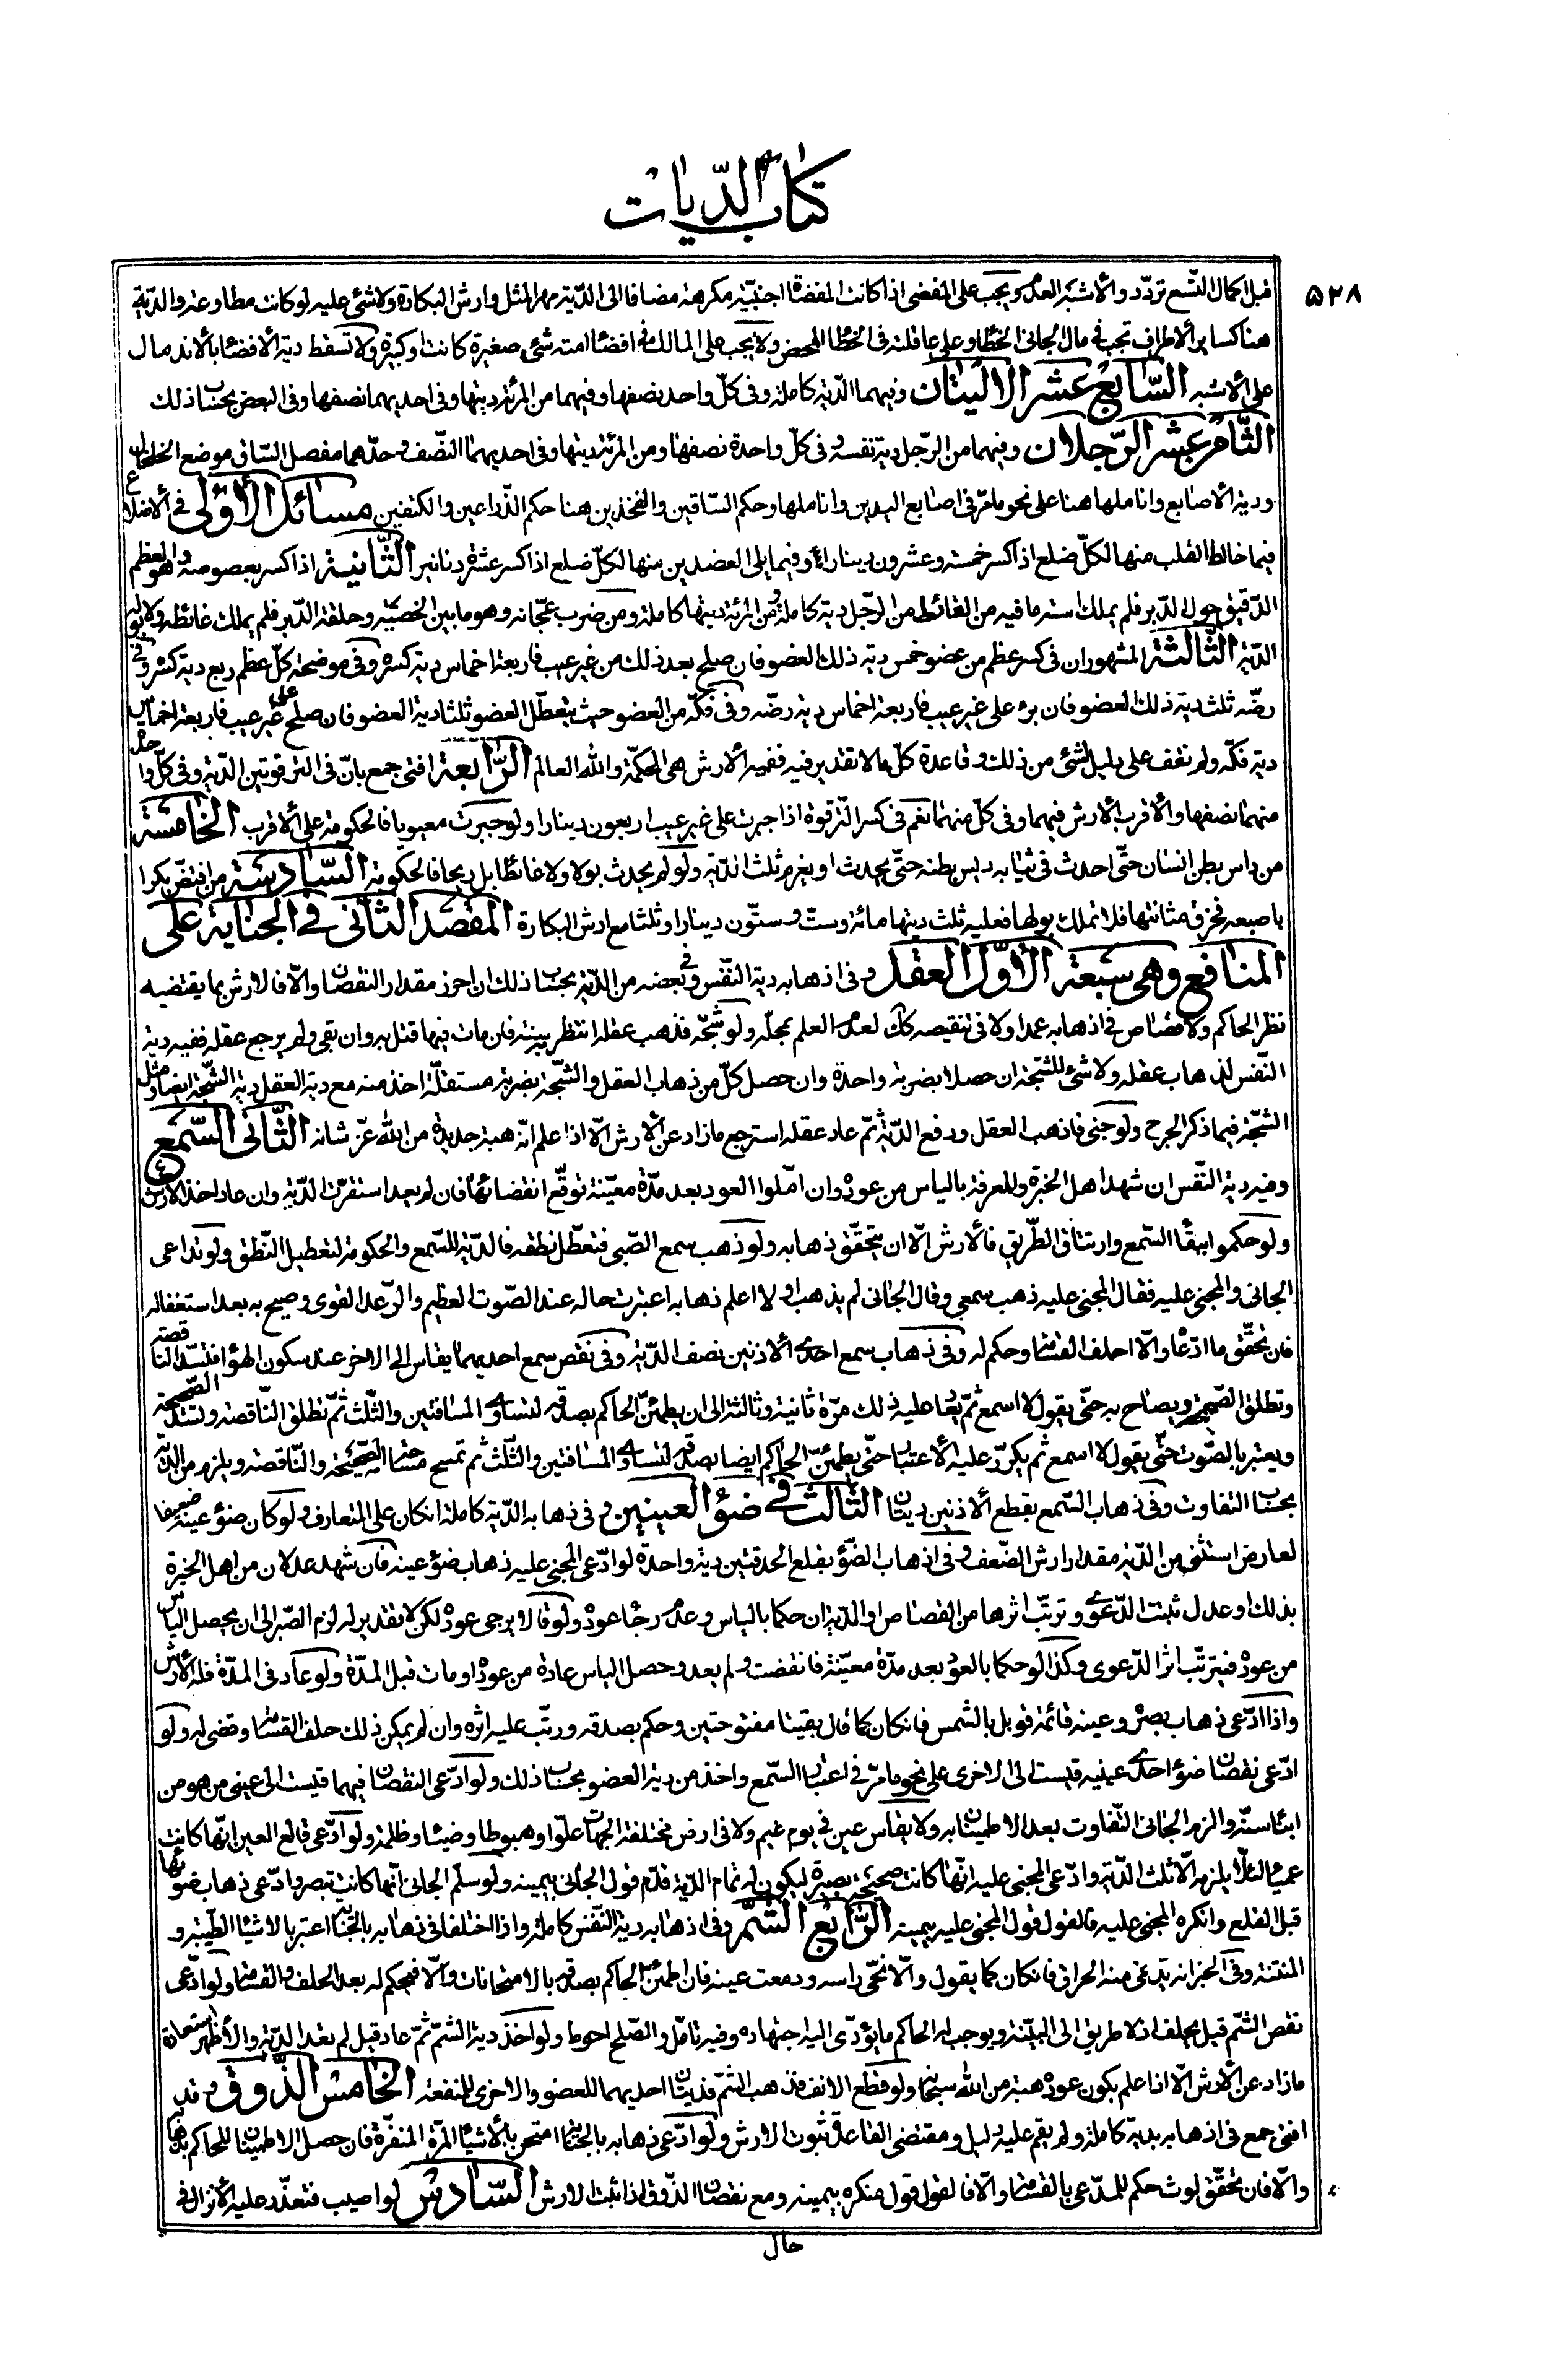 كتاب الديات
٥٢٨
قبل اكمال التسع تردد والأشبه العدم ويجب على المفضى اذا كانت المفضاة اجنبية مكرهة مضافا الى الدية مهر المثل وارش البكارة ولا شئ عليه لو كانت مطاوعة والدية
هنا كساير الأطراف تجب في مال الجانى الخطا وعلى عاقلته فى الخطا المحض ولا يجب على المالك فى افضاء امته شئ صغيرة كانت او كبيرة ولا تسقط دية الأفضاء بالأندمال
على الأشبه السابع عشر الاليتان وفيهما الدية كاملة وفى كل واحد نصفها وفيهما من المرئة ديتها وفى احديهما نصفها وفى البعض بحساب ذلك
الثامن عشر الرجلان وفيهما من الرجل دية نفسه وفى كل واحدة نصفها ومن المرئة ديتها وفى احديهما النصف وحدهما مفصل الساق موضع الخلخال
ودية الأصابع واناملها هنا على نحو ما مر فى اصابع اليدين واناملها وحكم الساقين والفخذين هنا حكم الذراعين والكتفين مسائل الأولى فى الأضلاع
فيما خالط القلب منها لكل ضلع اذا كسر خمسة وعشرون دينارا وفيما يلى العضدين منها لكل ضلع اذا كسر عشرة دنانير الثانية اذا كسر بعصوصه وهو العظم
الدقيق حول الدبر فلم يملك استه ما فيه من الغائط من الرجل دية كاملة ومن المرئة ديتها كاملة ومن ضرب عجانه وهو ما بين الخصية وحلقة الدبر فلم يملك غائطه ولا بوله
الدية الثالثة المشهور ان فى كسر عظم من عضو خمس دية ذلك العضو فان صلح بعد ذلك من غير عيب فاربعة اخماس دية كسره وفى موضحة كل عظم ربع دية كسره وفى
رضه ثلث دية ذلك العضو فان برء على غير عيب فاربعة اخماس دية رضه وفى فكه من العضو حيث يتعطل العضو ثلثا دية العضو فان صلح على غير عيب فاربعة اخماس
دية فكه ولم نقف على دليل لشئ من ذلك وقاعدة كل ما لا تقدير فيه ففيه الأرش هى المحكمة والله العالم الرابعة افتى جمع بان فى الترقوتين الدية وفى كل واحد
منهما نصفها والأقرب الأرش فيهما وفى كل منهما نعم فى كسر الترقوة اذا جبرت على غير عيب اربعون دينارا ولو جبرت معيوبا فالحكومة على الأقرب الخامسة
من داس بطن انسان حتى احدث فى ثيابه ديس بطنه حتى يحدث او يغرم ثلث الدية ولو لم يحدث بولا ولا غائطا بل ريحا فالحكومة السادسة من افتض بكرا
باصبعه فخرق مثانتها فلا تملك بولها فعليه ثلث ديتها مائة وست وستون دينارا وثلثا مع ارش البكارة المقصد الثانى فى الجناية على
المنافع وهى سبعة الأول العقل وفى اذهابه دية النفس وفى بعضه من الدية بحساب ذلك ان احرز مقدار النقصان والا فالأرش بما يقتضيه
نظر الحاكم ولا قصاص فى اذهابه عمدا ولا فى تنقيصه كك لعدم العلم بمحله ولو شجه فذهب عقله انتظر به سنة فان مات فيها قتل به وان بقى ولم يرجع عقله ففيه دية
النفس لذهاب عقله ولا شئ للشجة ان حصلا بضربة واحدة وان حصل كل من ذهاب العقل والشجة بضربة مستقلة اخذ منه مع دية العقل دية الشجة ايضا ومثل
الشجة فيما ذكر الجرح ولو جنى فاذهب العقل ودفع الدية ثم عاد عقله استرجع ما زاد عن الأرش الا اذا علم انه هبة جديدة من الله عز شانه الثانى السمع
وفيه دية النفس ان شهد اهل الخبرة والمعرفة بالياس من عوده وان املوا العود بعد مدة معينة توقع انقضائها فان لم يعد استقرت الدية وان عاد اخذ الأرش
ولو حكموا ببقاء السمع وارتتاق الطريق فالأرش الا ان يتحقق ذهابه ولو ذهب سمع الصبى فتعطل نطقه فالدية للسمع والحكومة لتعطيل النطق ولو تداعى
الجانى والمجنى عليه فقال المجنى عليه ذهب سمعى وقال الجانى لم يذهب او لا اعلم ذهابه اعتبرت حاله عند الصوت العظيم والرعد القوى وصيح به بعد استغفاله
فان تحقق ما ادعاه والا احلف القسامة وحكم له وفى ذهاب سمع احدى الأذنين نصف الدية وفى نقص سمع احديهما يقاس الى الاخر عند سكون الهواء فتسد الناقصة
وتطلق الصحيحة ويصاح به حتى يقول لا اسمع ثم يعاد عليه ذلك مرة ثانية وثالثة الى ان يطمئن الحاكم بصدقه لتساوى المسافتين والثلث ثم تطلق الناقصة وتسد الصحيحة
ويعتبر بالصوت حتى يقول لا اسمع ثم يكرر عليه الأعتبار حتى يطمئن الحاكم ايضا بصدقه لتساوى المسافتين والثلث ثم تمسح مسافة الصحيحة والناقصة ويلزم من الدية
بحساب التفاوت وفى ذهاب السمع بقطع الأذنين ديتان الثالث فى ضوء العينين وفى ذهابه الدية كاملة ان كان على المتعارف ولو كان ضوء عينه ضعيفا
لعارض استثنى من الدية مقدار ارش الضعف وفى اذهاب الضوء بقلع الحدقتين دية واحدة لو ادعى المجنى عليه ذهاب ضوء عينه فان شهد عدلان من اهل الخبرة
بذلك او عدل ثبتت الدعوى وترتب اثرها من القصاص او الدية ان حكما بالياس وعدم رجاء عوده ولو قالا يرجى عوده لكن لا تقدير له لزم الصبر الى ان يحصل الياس
من عوده فيترتب اثر الدعوى وكذا لو حكما بالعود بعد مدة معينة فانقضت ولم يعد وحصل الياس عادة من عوده او مات قبل المدة ولو عاد فى المدة فله الأرش
واذا ادعى ذهاب بصره وعينه قائمة قوبل بالشمس فان كان كما قال بقيتا مفتوحتين وحكم بصدقه ورتب عليه اثره وان لم يمكن ذلك حلف القسامة وقضى له ولو
ادعى نقصان ضوء احدى عينيه قيست الى الاخرى على نحو ما مر فى اعتبار السمع واخذ من دية العضو بحساب ذلك ولو ادعى النقصان فيهما قيست الى عينى من هو من
ابناء سنه والزم الجانى التفاوت بعد الاطمينان به ولا يقاس عين فى يوم غيم ولا فى ارض مختلفة الجهات علوا وهبوطا وضياء وظلمة ولو ادعى قالع العين انها كانت
عمياء لئلا يلزم الا ثلث الدية وادعى المجنى عليه انها كانت صحيحة بصيرة ليكون له تمام الدية قدم قول الجانى بيمينه ولو سلم الجانى انها كانت تبصر وادعى ذهاب ضوئها
قبل القلع وانكره المجنى عليه فالقول قول المجنى عليه بيمينه الرابع الشم وفى اذهابه دية النفس كاملة واذا اختلفا فى ذهابه بالجناية اعتبر بالاشياء الطيبة و
المنتنة وفى الخبر انه يدنى منه الحراق فان كان كما يقول والا نحى راسه ودمعت عينه فان اطمئن الحاكم بصدقه بالامتحانات والا فيحكم له بعد الحلف والقسامة ولو ادعى
نقص الشم قيل يحلف اذ لا طريق الى البينة ويوجب له الحاكم ما يؤدى اليه اجتهاده وفيه تامل والصلح احوط ولو اخذ دية الشم ثم عاد قيل لم يعد الدية والأظهر استعادة
ما زاد عن الأرش الا اذا علم بكون عوده هبة من الله سبحانه ولو قطع الانف فذهب الشم فديتان احديهما للعضو والاخرى للمنفعة الخامس الذوق وقد
افتى جمع فى اذهابه بدية كاملة ولم يقم عليه دليل ومقتضى القاعدة ثبوت الارش ولو ادعى ذهابه بالجناية امتحن بالأشياء المرة المنفرة فان حصل الاطمينان للحاكم بذهابه
والا فان تحقق لوث حكم للمدعى بالقسامة والا فالقول قول منكره بيمينه ومع نقصان الذوق اذا ثبت الارش السادس لو اصيب فتعذر عليه الأنزال فى
حال